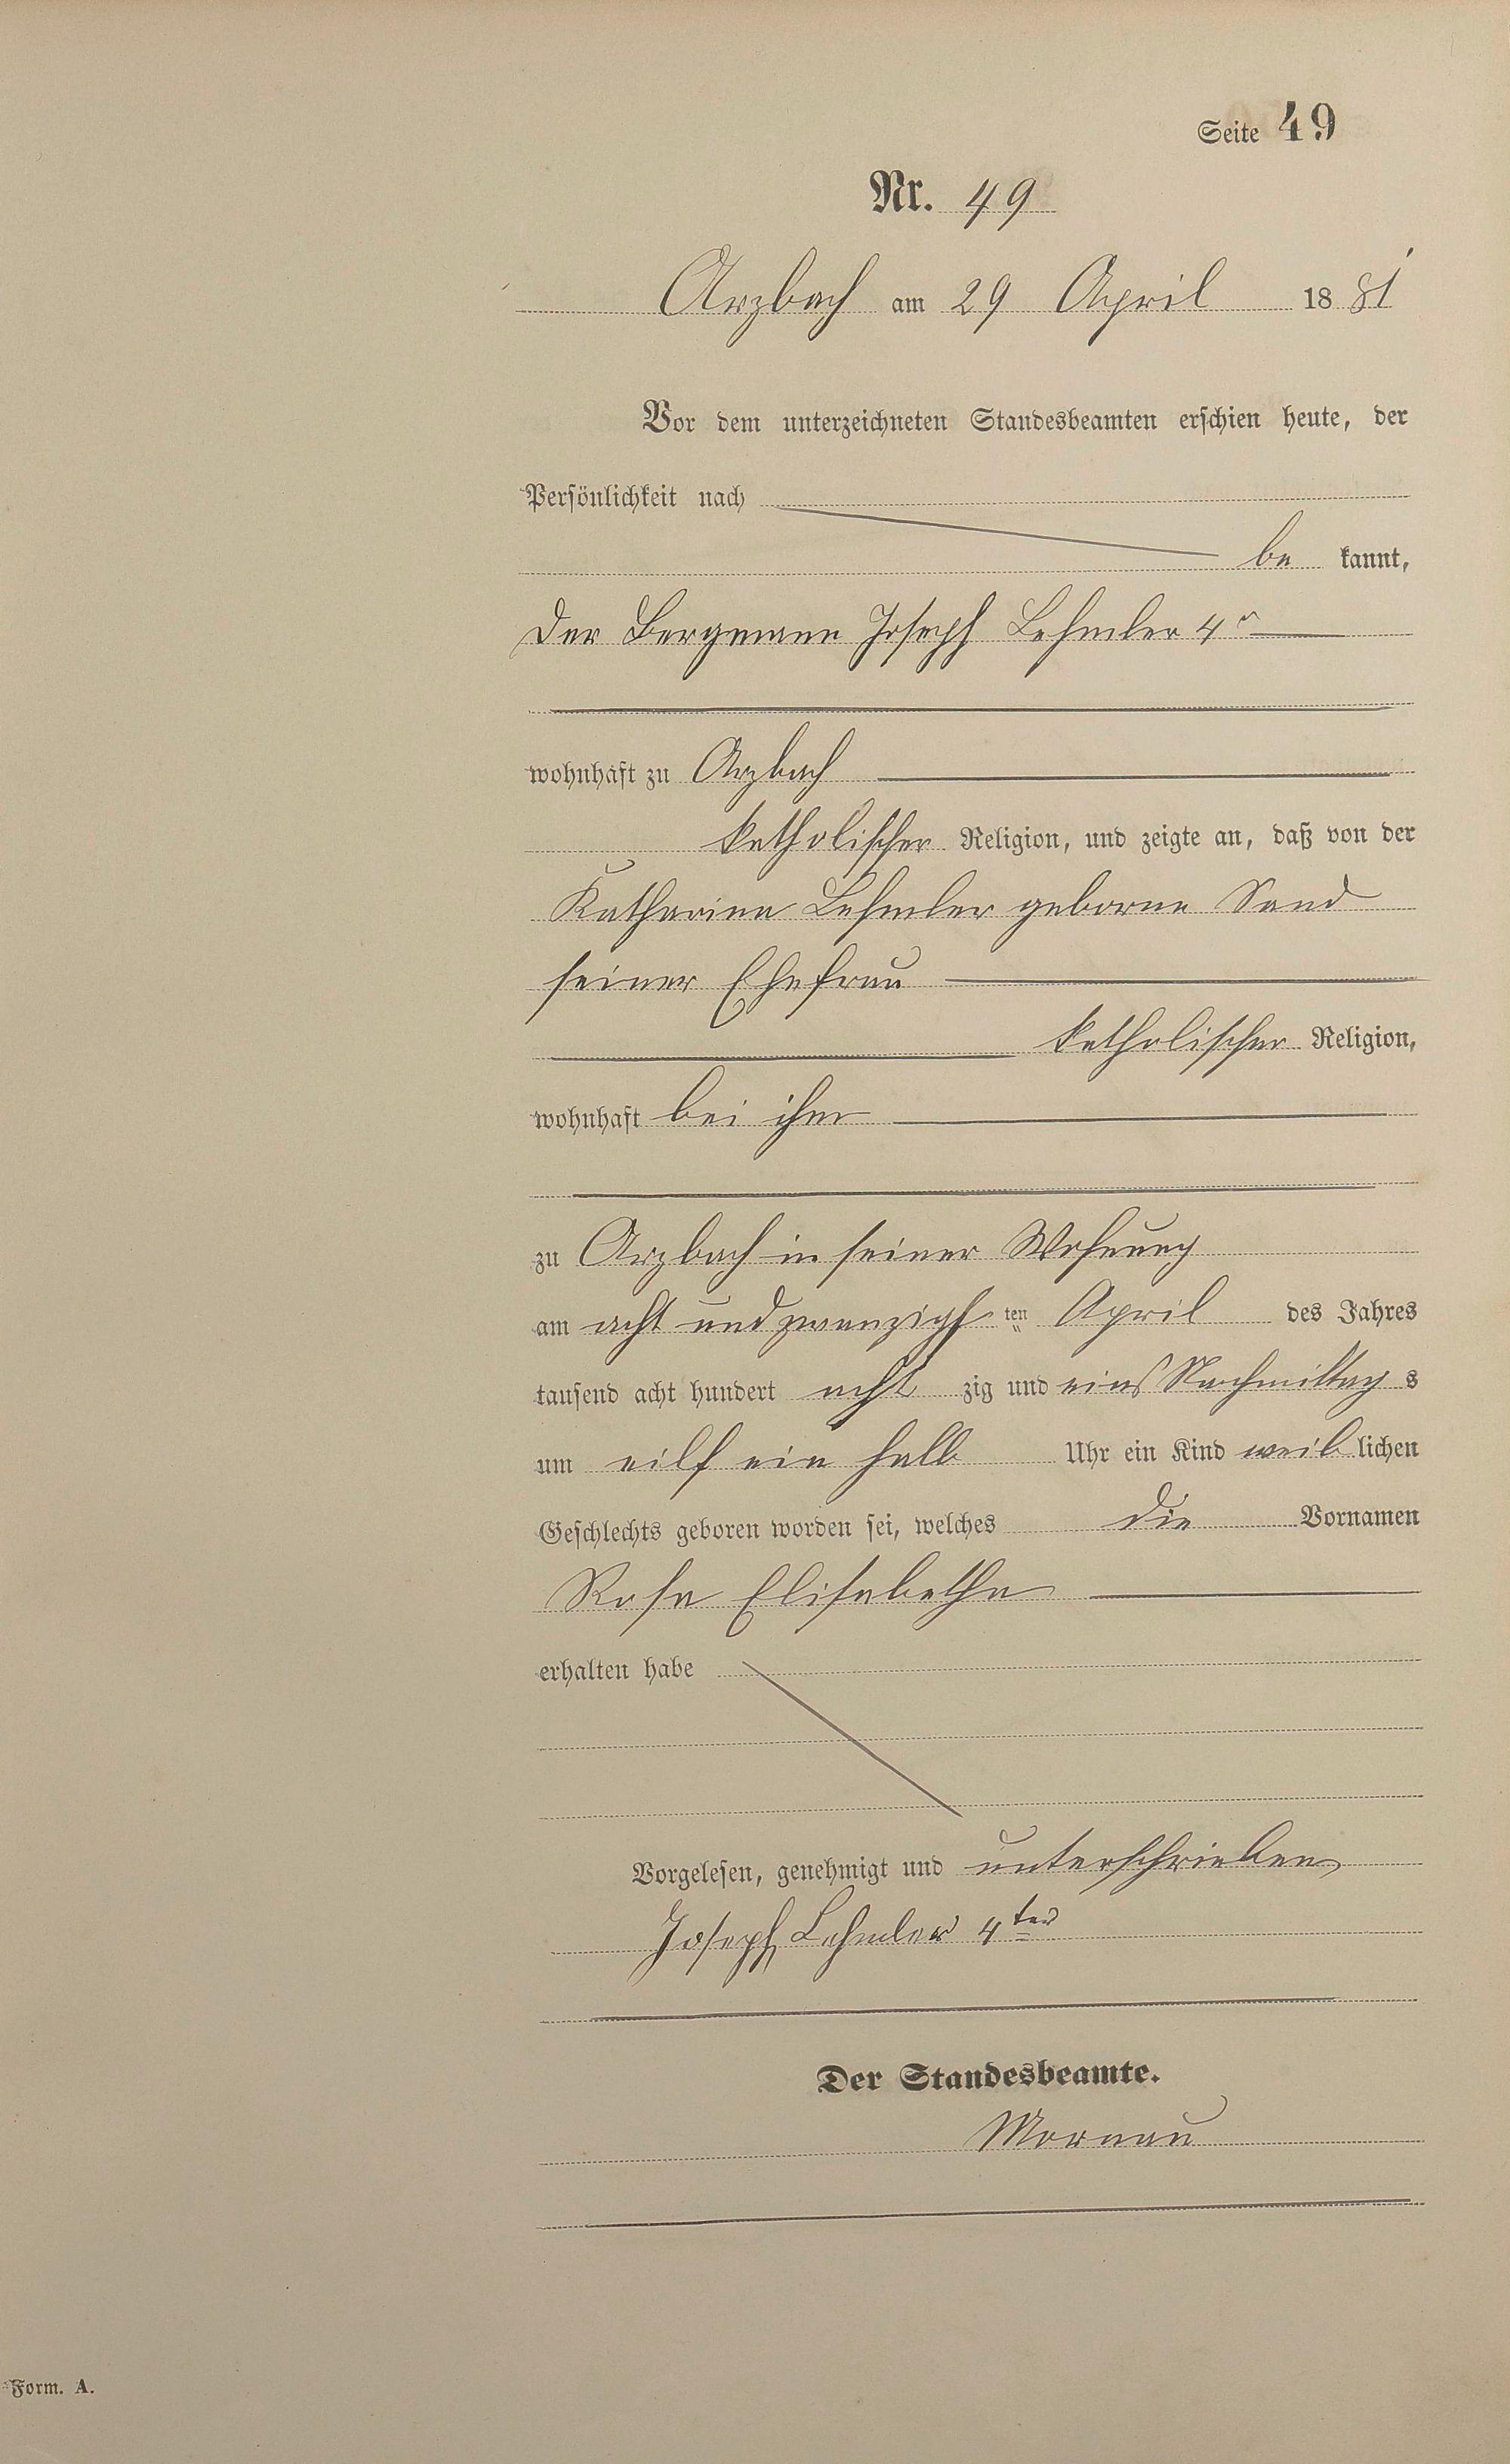 Seite 49
Nr. 49
Arzbach am 29 April 1881
Vor dem unterzeichneten Standesbeamten erschien heute, der
Persönlichkeit nach
be kannt,
der Bergmann Joseph Lehmler 4r
wohnhaft zu Arzbach
katholischer Religion, und zeigte an, daß von der
Katharina Lehmler geborne Sand
seiner Ehefrau
katholischer Religion,
wohnhaft bei ihm
zu Arzbach in seiner Wohnung
am acht und zwanzigsten April des Jahres
tausend acht hundert acht zig und eins Nachmittag s
um eilf ein halb Uhr ein Kind weib lichen
Geschlechts geboren worden sei, welches die Vornamen
Rosa Elisabetha
erhalten habe
Vorgelesen, genehmigt und unterschrieben
Joseph Lehmler 4ter
Der Standesbeamte.
Mornau
Form. A.